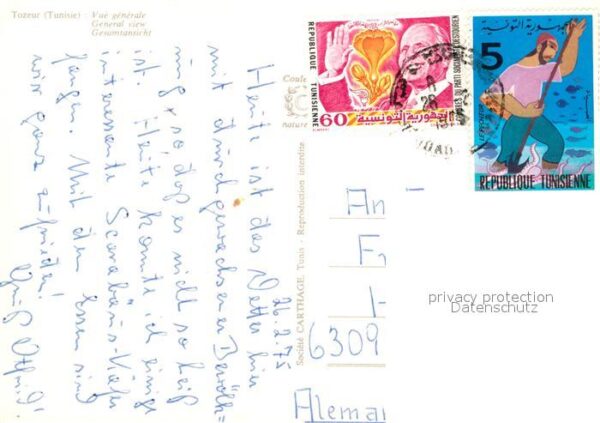 Tozeur (Tunisie) : Vue générale
General view
Gesamtansicht
26.2.75
Heute ist das Wetter hier
mit durchgewachsener Bewölk=
ung, so daß es nicht so heiß
ist. Heute konnte ich einige
interessante Scarabäus-Käfer
fangen. Mit dem Essen sind
wir ganz zufrieden!
Gruß
Société CARTHAGE, Tunis - Reproduction interdite
Coule
nature
REPUBLIQUE TUNISIENNE
60
الجمهورية التونسية
DU PARTI SOCIALISTE DESTOURIEN
الجمهورية التونسية
5
REPUBLIQUE TUNISIENNE
An
F
H
6309
Alema
privacy protection
Datenschutz